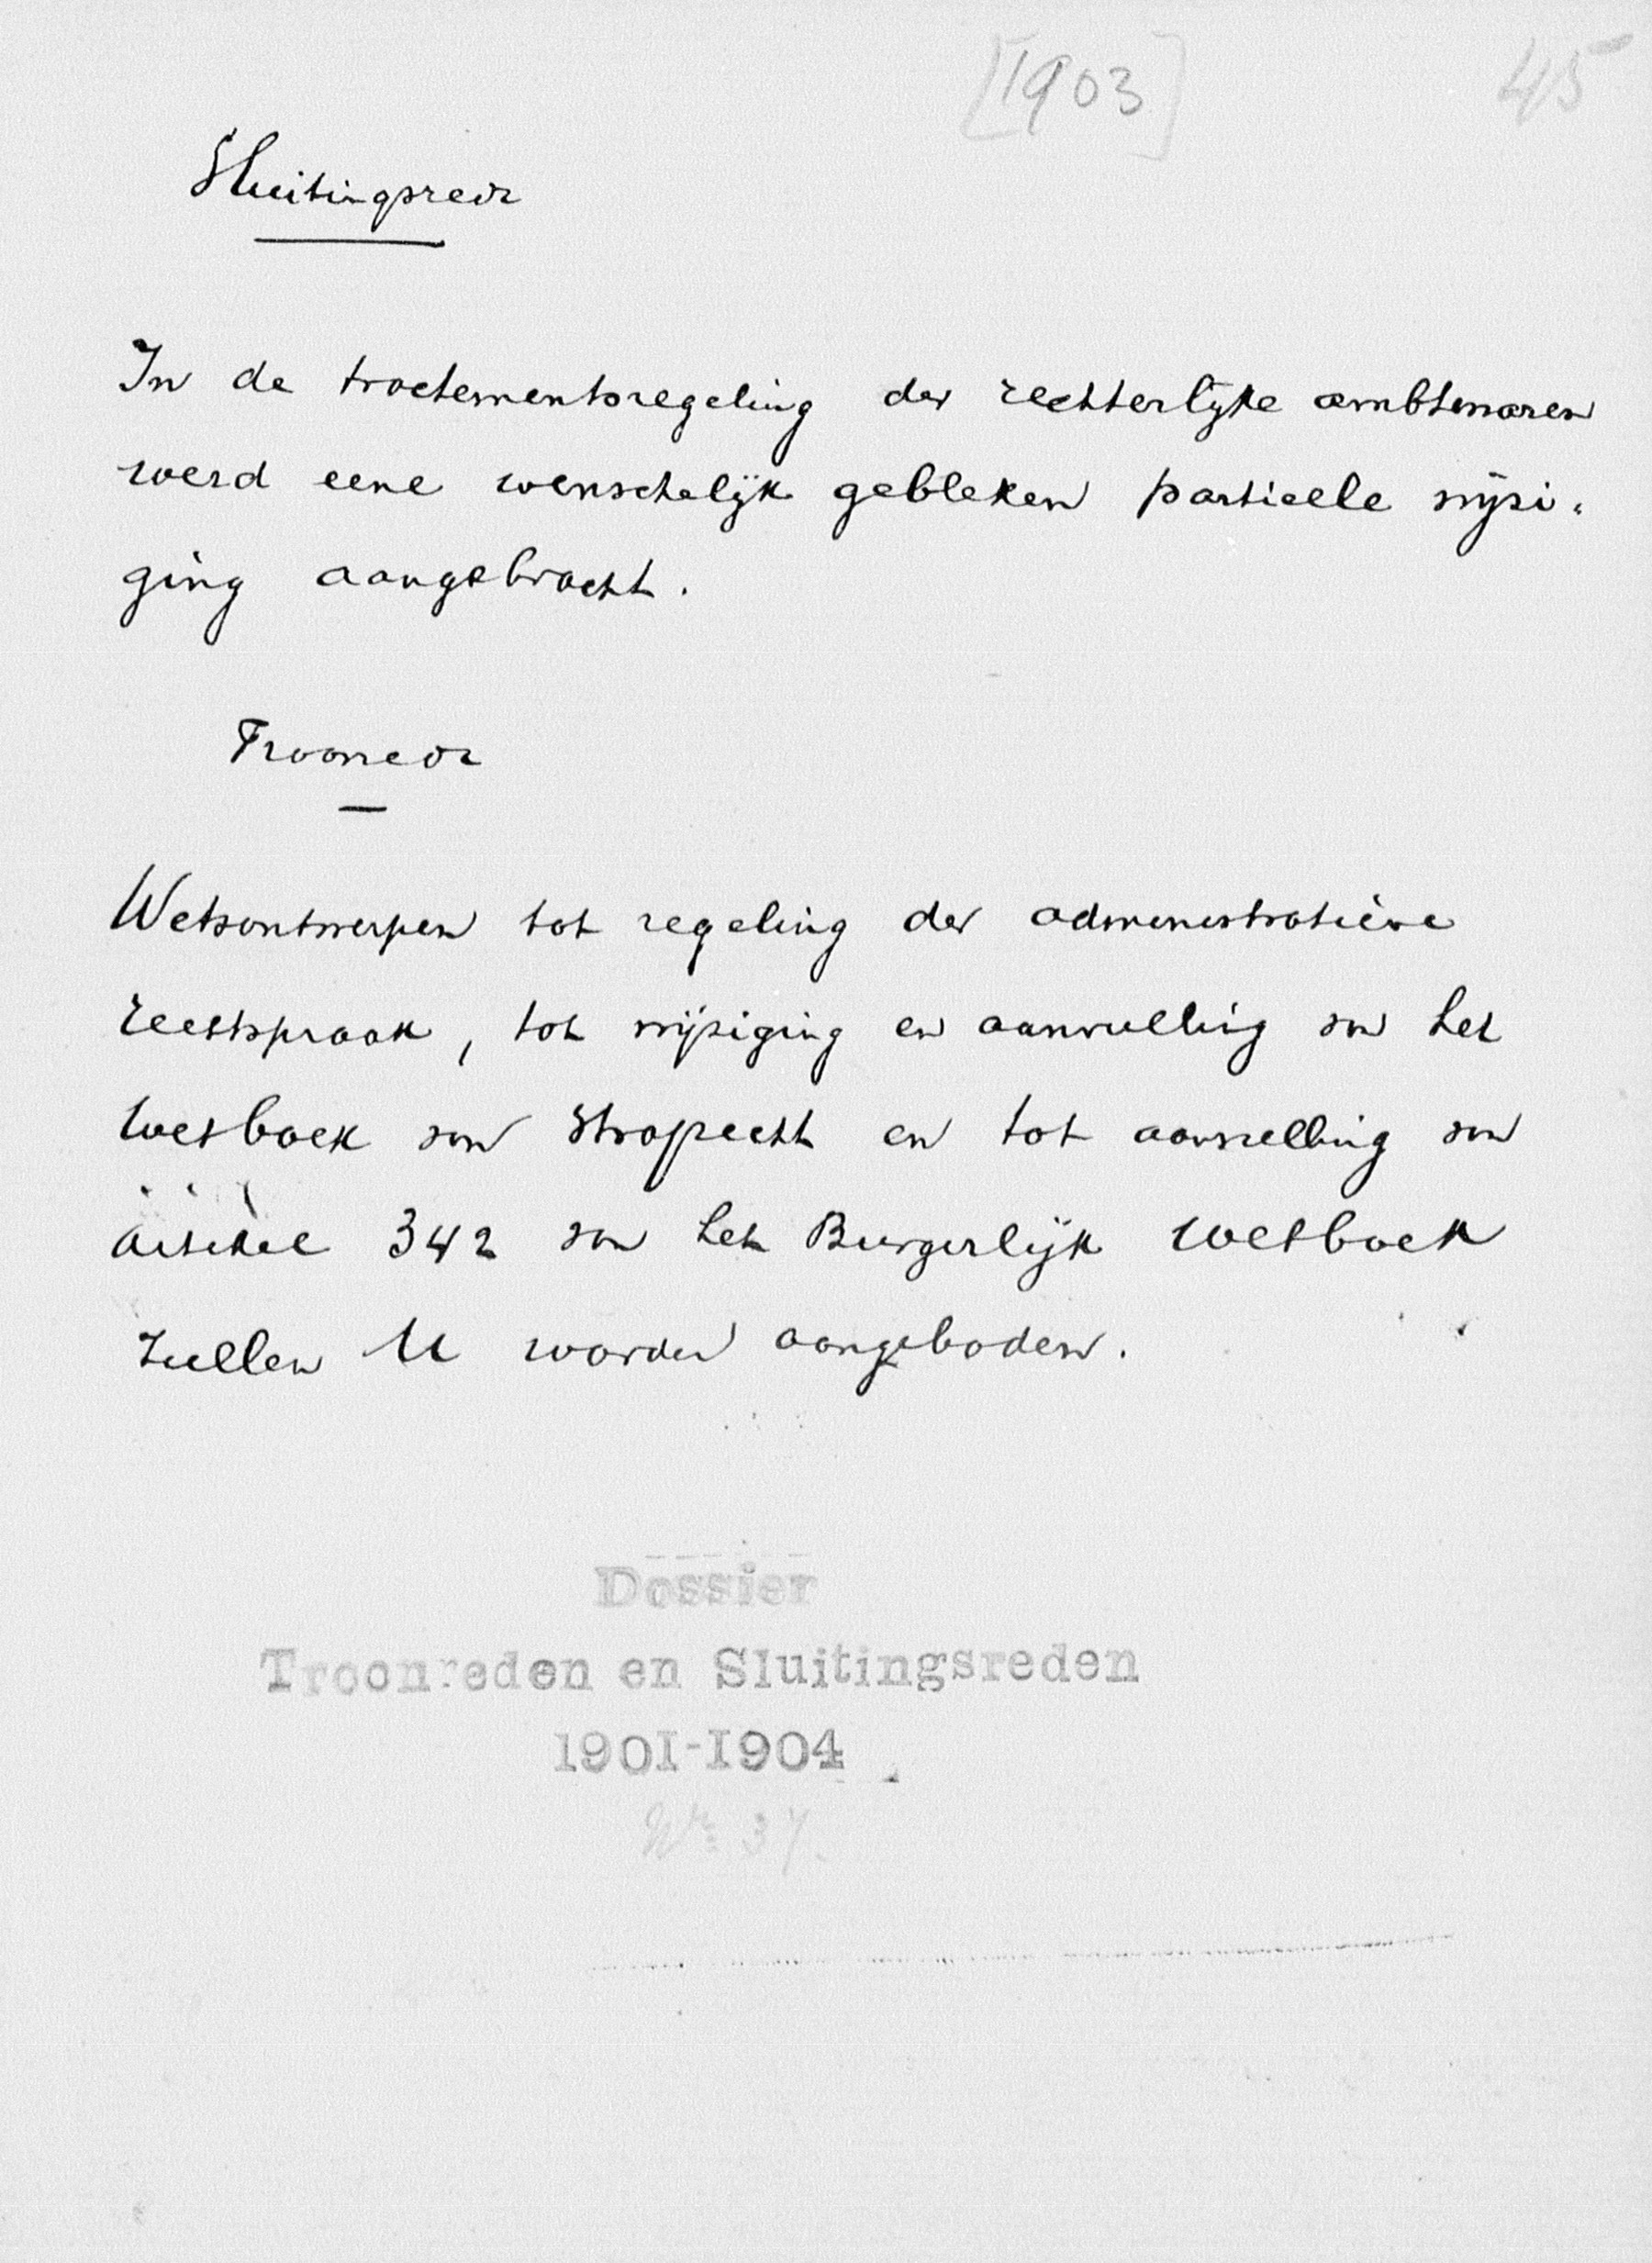 [1903]
45
Sluitingsrede
In de tractementsregeling der rechterlijke ambtenaren
werd eene wenschelijk gebleken partieele wijzi-
ging aangebracht.
Troonrede
Wetsontwerpen tot regeling der administratieve
rechtspraak, tot wijziging en aanvulling van het
Wetboek van Strafrecht en tot aanvulling van
artikel 342 van het Burgerlijk Wetboek
zullen U worden aangeboden.
Dossier
Troonreden en Sluitingsreden
1901-1904
No 37.